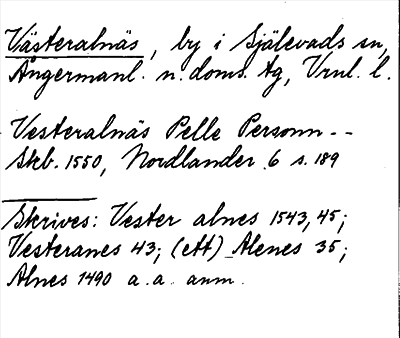 Västeralnäs, by i Själevads sn,
Ångermanl. n. doms. tg, Vrnl. l.
Vesteralnäs Pelle Personn --
Skb. 1550, Nordlander 6 s. 189
Skrives: Vester alnes 1543, 45;
Vesteranes 43; (ett) Alenes 35;
Alnes 1490 a. a. anm.